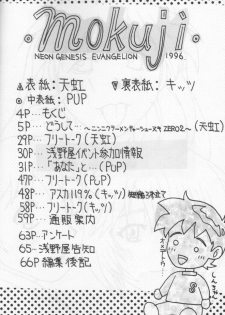 mokuji
NEON GENESIS EVANGELION 1996.
▲表紙:天虹 ♥裏表紙:キッツ
◉中表紙:PUP
4P…もくじ
5P…どうして…
〜ニンニクラーメンチャーシューヌキZERO2.〜(天虹)
29P…フリートーク(天虹)
30P…浅野屋イベント参加情報
31P…「あなた」と…(PUP)
47P…フリートーク(PUP)
48P…アスカ119%(キッツ)
58P…フリートーク(キッツ)
59…通販案内
63P…アンケート
65…浅野屋告知
66P編集後記
オメデトウ
しんちゃん